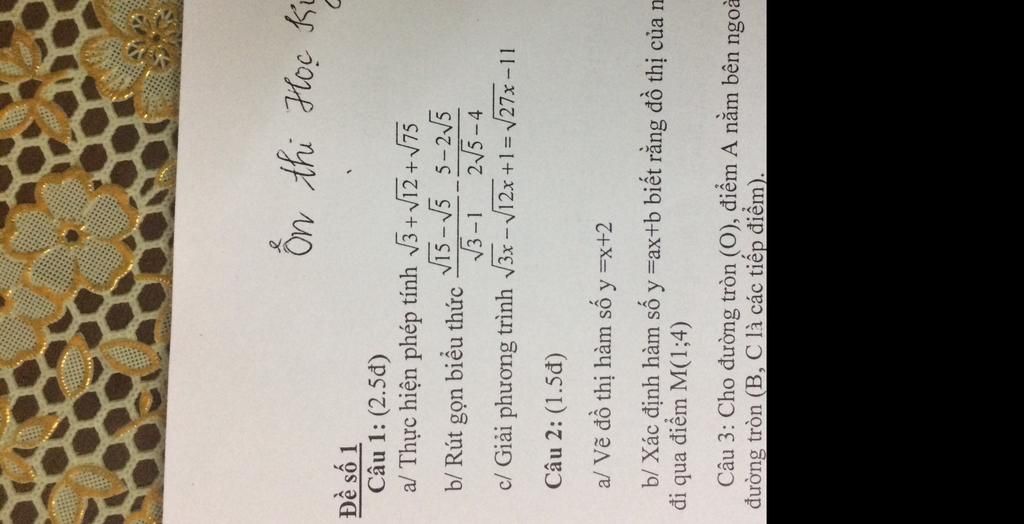 Ôn thi Học
Đề số 1
Câu 1: (2.5đ)
a/ Thực hiện phép tính √3 + √12 + √75
b/ Rút gọn biểu thức (√15 − √5)/(√3 − 1) − (5 − 2√5)/(2√5 − 4)
c/ Giải phương trình √3x − √12x + 1 = √27x − 11
Câu 2: (1.5đ)
a/ Vẽ đồ thị hàm số y =x+2
b/ Xác định hàm số y =ax+b biết rằng đồ thị của
đi qua điểm M(1;4)
Câu 3: Cho đường tròn (O), điểm A nằm bên ngoà
đường tròn (B, C là các tiếp điểm).